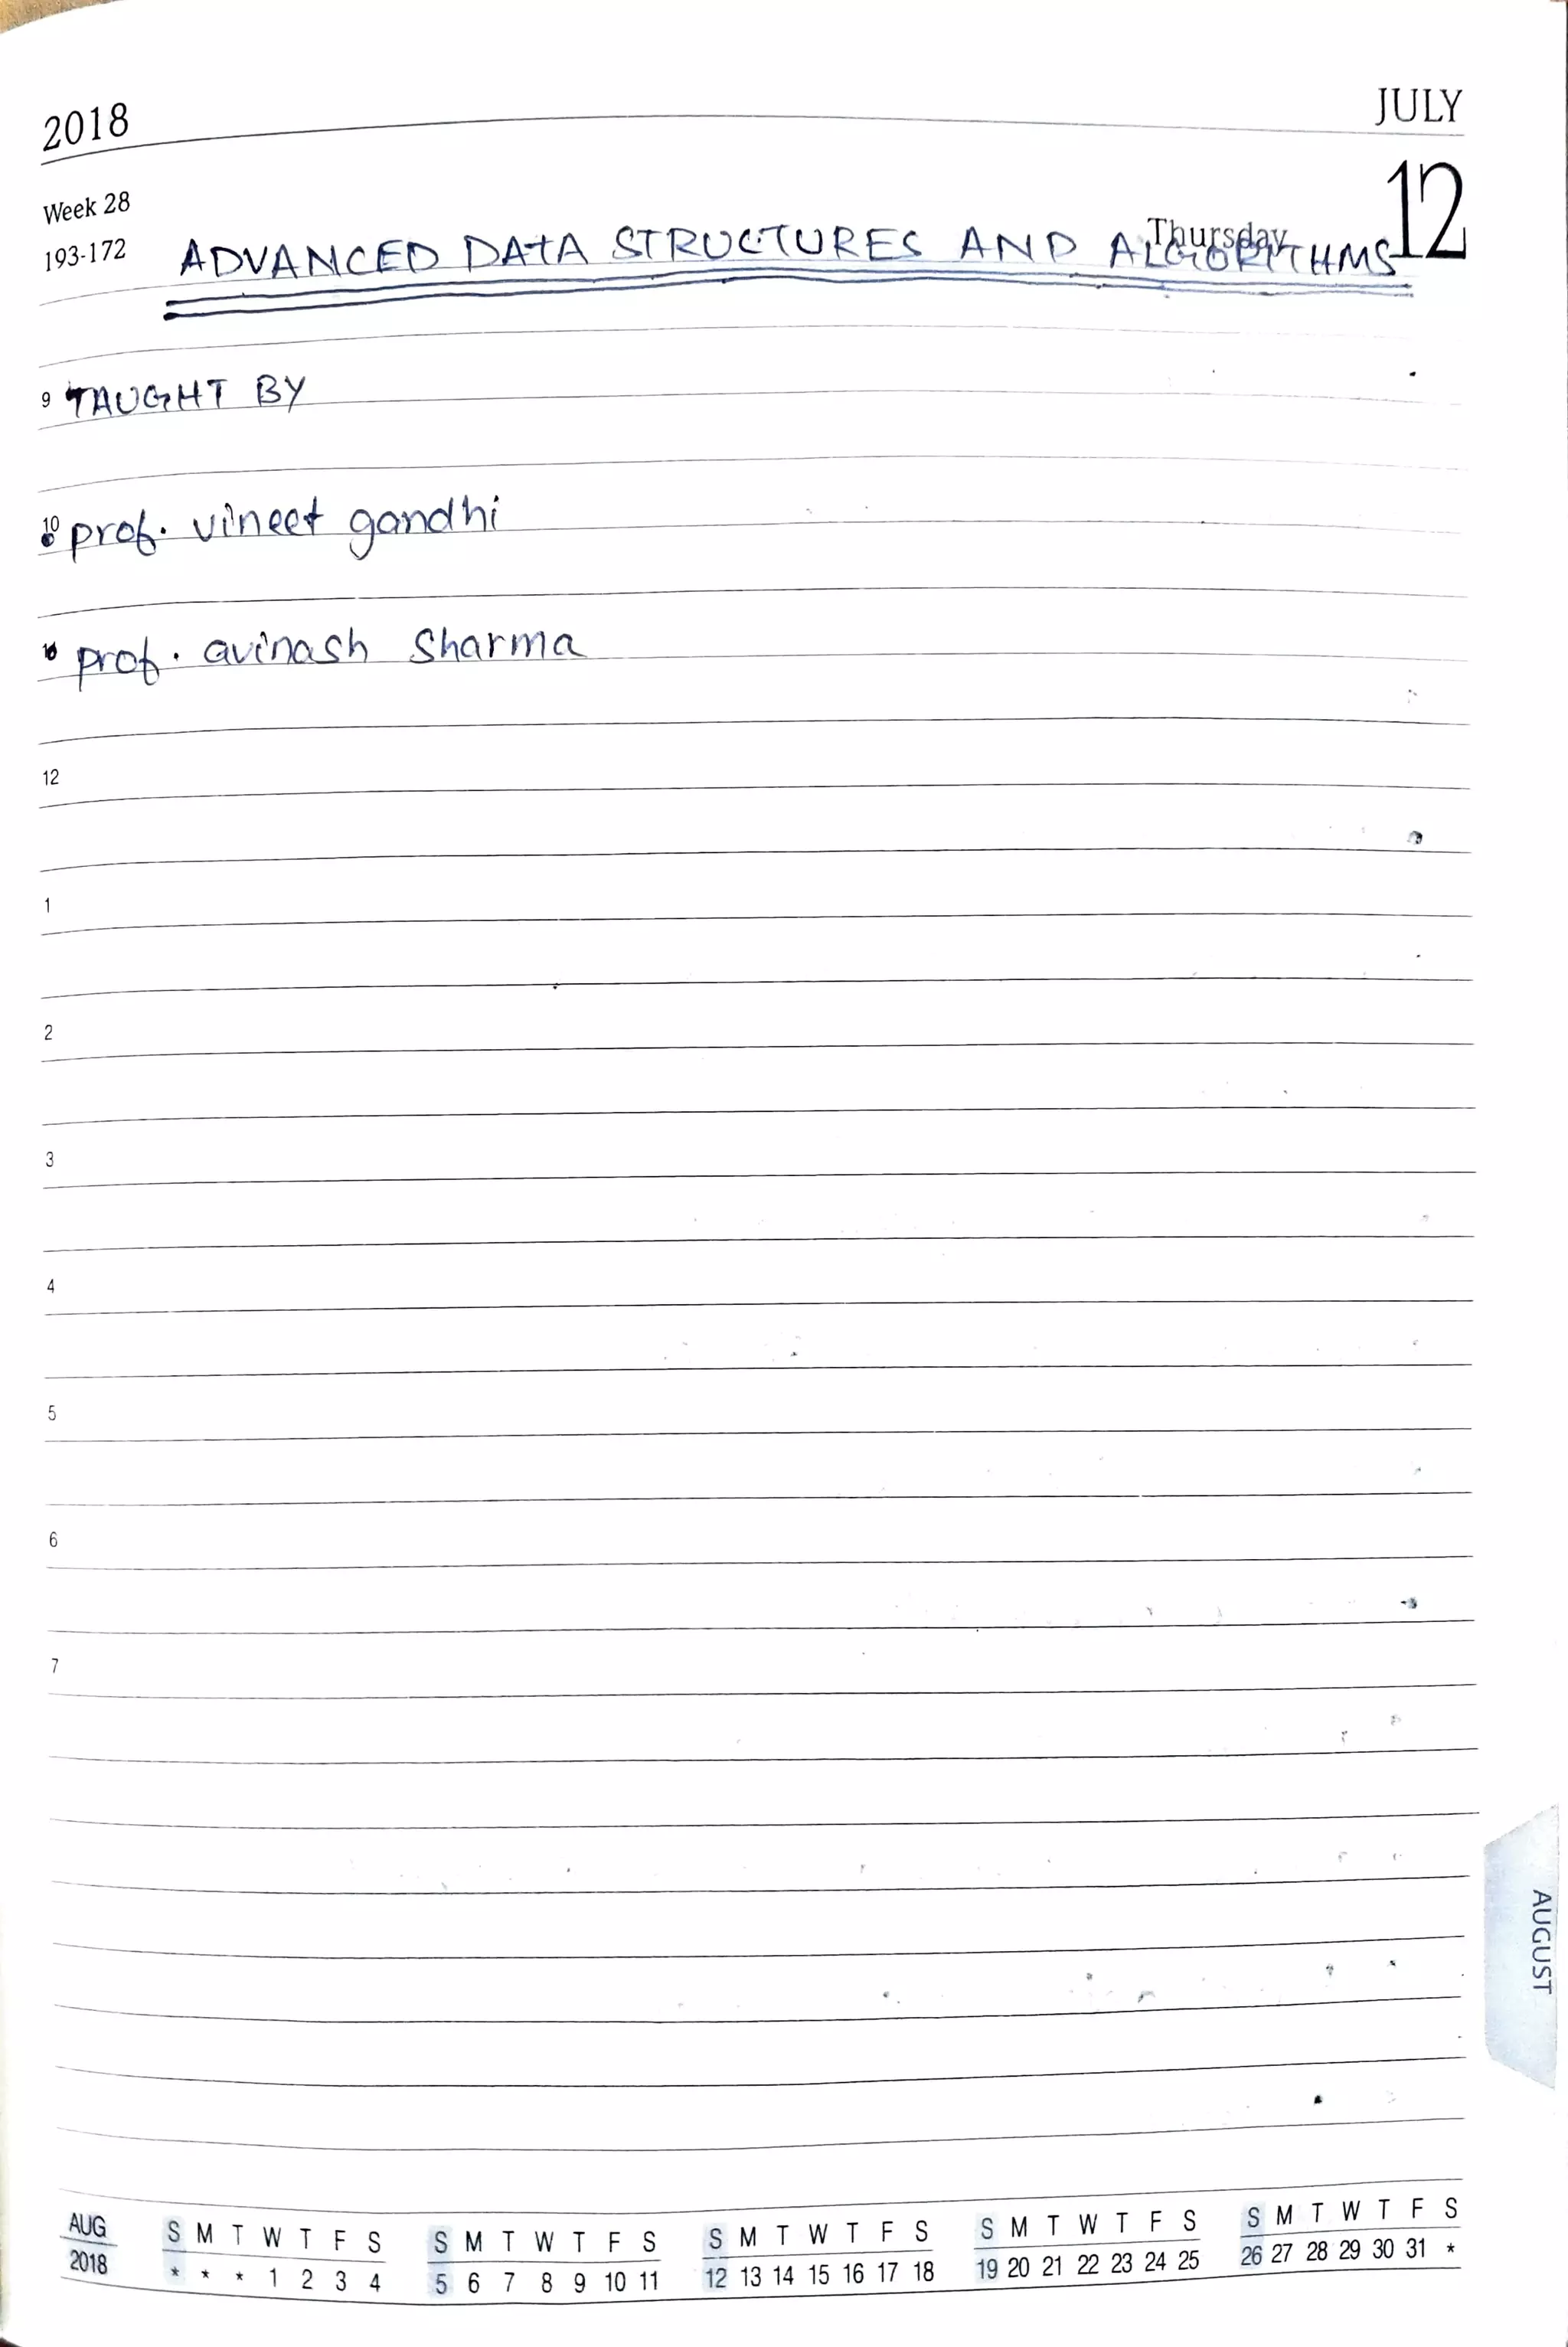 2018 JULY
Week 28 12
193-172 Thursday
ADVANCED DATA STRUCTURES AND ALGORITHMS
9 TAUGHT BY
10 prof. vineet gandhi
prof. avinash Sharma
12
1
2
3
4
5
6
7
AUGUST
AUG S M T W T F S S M T W T F S S M T W T F S S M T W T F S S M T W T F S
2018 * * * 1 2 3 4 5 6 7 8 9 10 11 12 13 14 15 16 17 18 19 20 21 22 23 24 25 26 27 28 29 30 31 *